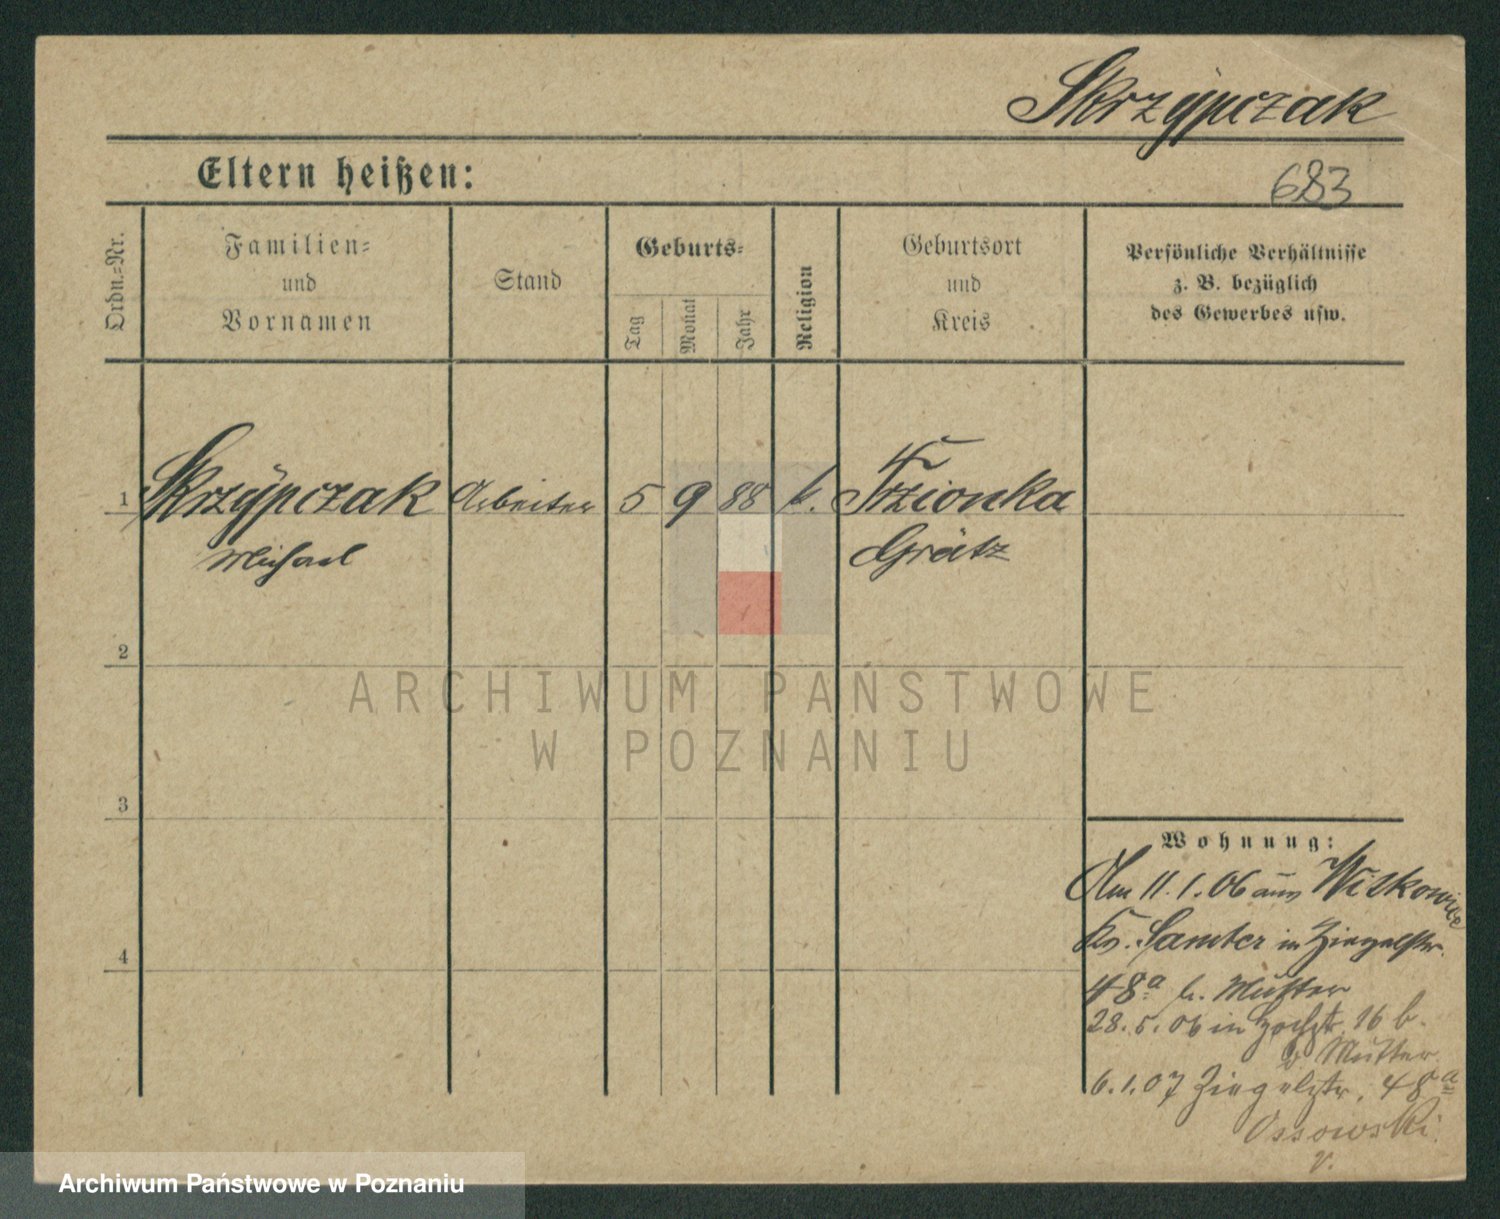 Skrzypczak
Eltern heißen:
683
Ordn.=Nr.
Familien=
und
Vornamen
Stand
Geburts=
Tag
Monat
Jahr
Religion
Geburtsort
und
Kreis
Persönliche Verhältnisse
z. B. bezüglich
des Gewerbes usw.
1 Skrzÿpczak Arbeiter 5 9 88 k. Trzionka
Michael Grätz
2
ARCHIWUM PAŃSTWOWE
W POZNANIU
3
Wohnung:
Am 11.1.06 aus Witkowice
Kr. Samter in Ziegelstr.
48a b. Mutter
28.5.06 in 16 b.
d. Mutter
6.1.07 Ziegelstr. 48a
Ossowski
v.
4
Archiwum Państwowe w Poznaniu